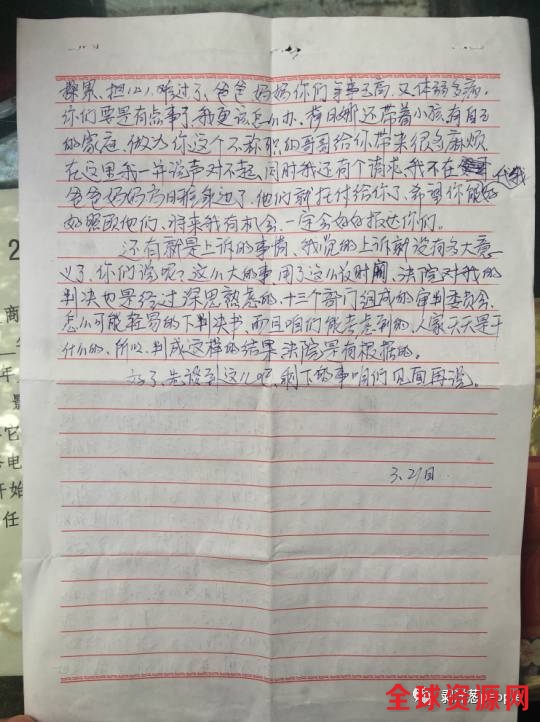 担心、难过了、爸爸妈妈你们年事已高、又体弱多病、
你们要是有点事了我更该怎么办、带着小孩有自己
的家庭、做为你这个不称职的哥哥给你带来很多麻烦
在这里我一并说声对不起、同时我还有个请求、我不在 代我
爸爸妈妈身边了、他们就托付给你了、希望你能好
好照顾他们、将来我有机会、一定会好好报达你们。
还有就是上诉的事情、我觉的上诉就没有多大意
义了、你们说呢？这么大的事、用了这么长时间、法院对我的
判决也是经过深思熟虑的、十三个部门组成的审判委员会、
怎么可能轻易的下判决书、而且咱们能考虑到的、人家天天是干
什么的、所以、判成这样的结果法院是有根据的。
好了、先谈到这儿吧、剩下的事咱们见面再说。
3、21日
2
商
年
它
电
开始
任
全球资源网